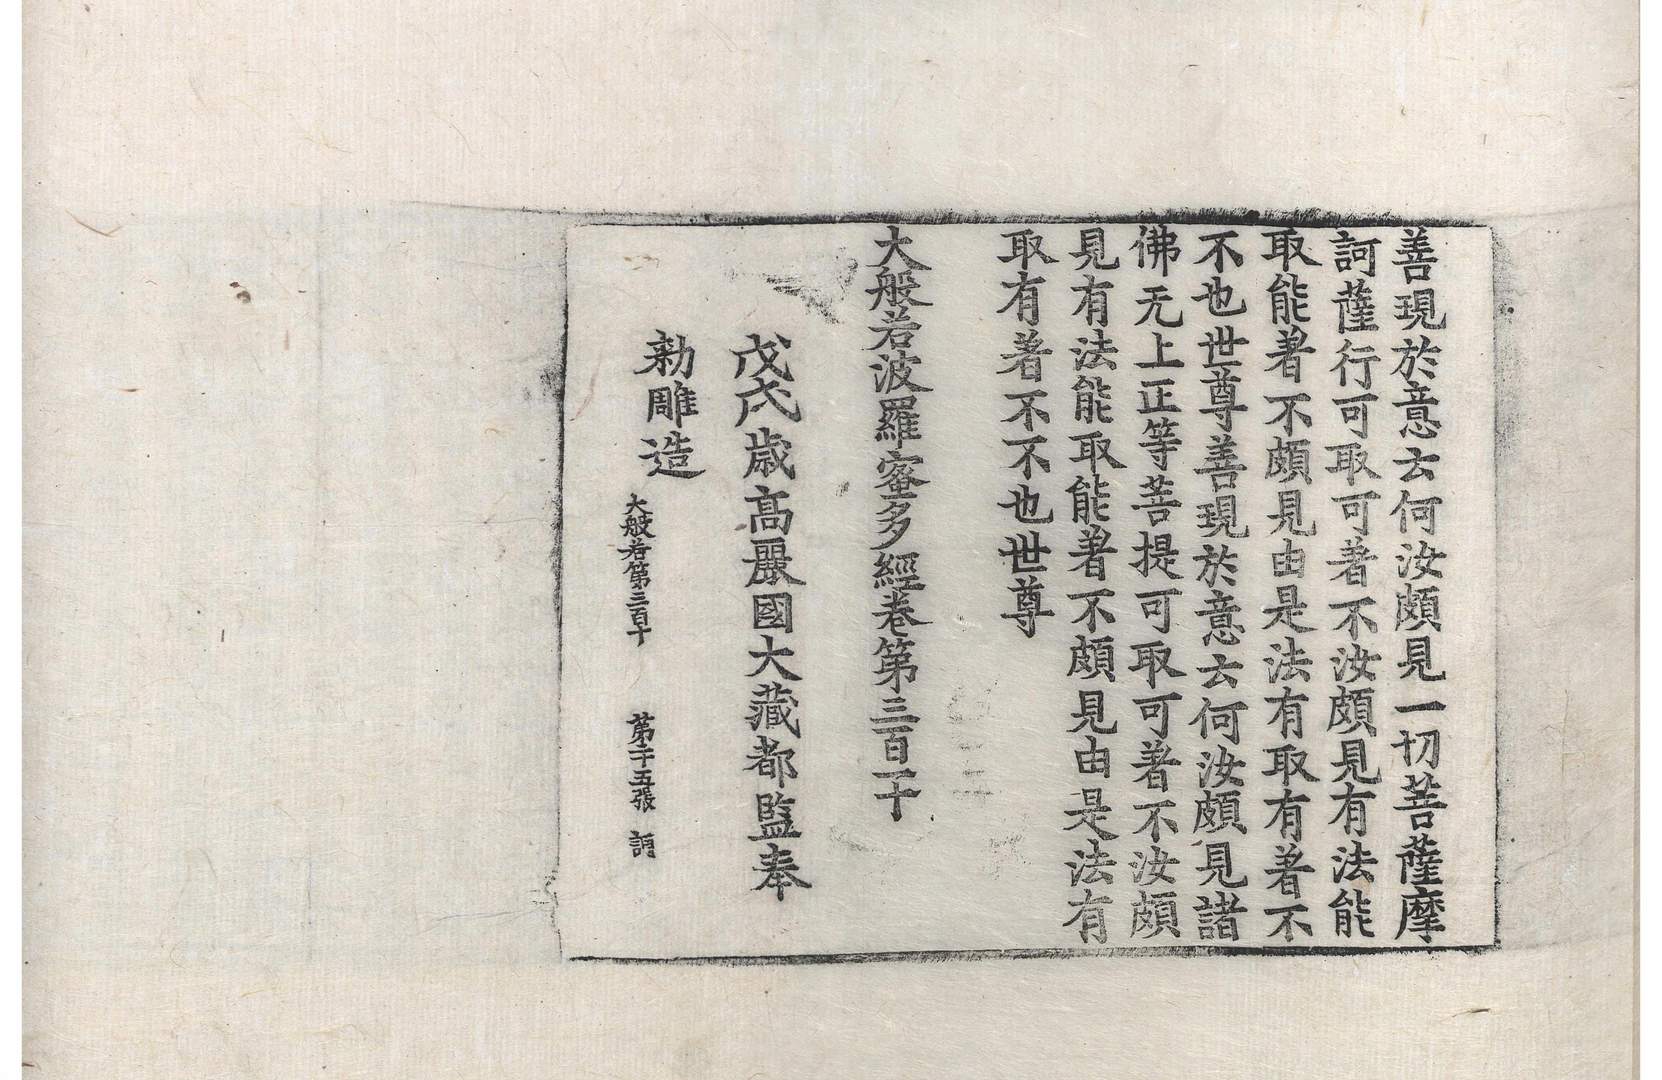 善現於意云何汝頗見一切菩薩摩
訶薩行可取可著不汝頗見有法能
取能著不頗見由是法有取有著不
不也世尊善現於意云何汝頗見諸
佛无上正等菩提可取可著不汝頗
見有法能取能著不頗見由是法有
取有著不不也世尊
大般若波羅蜜多經卷第三百一十
戊戌歲高麗國大藏都監奉
勅雕造
大般若第三百十 第二十五張